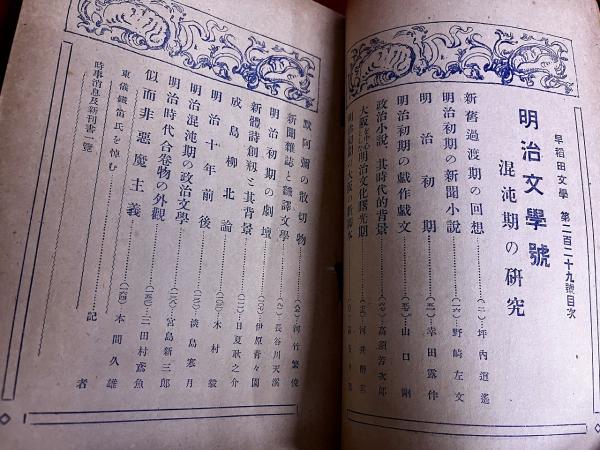 早稻田文學 第二百二十九號目次
明治文學號
混沌期の研究
新舊過渡期の回想 (二) 坪内逍遙
明治初期の新聞小說 野崎左文
明治初期 幸田露伴
明治初期の戯作戯文 山口剛
政治小說と其時代的背景 高須芳次郎
大阪を中心とした明治文化曙光期 河井酔茗
明治初期の大阪の
默阿彌の散切物 河竹繁俊
新聞雜誌と飜譯文學 長谷川天溪
明治初期の劇壇 伊原青々園
新體詩創始と其背景 日夏耿之介
成島柳北論 木村毅
明治十年前後 淡島寒月
明治混沌期の政治文學 宮島新三郎
明治時代合卷物の外觀 三田村鳶魚
似而非惡魔主義 本間久雄
東儀鐵笛氏を悼む
時事消息及新刊書一覽 記者